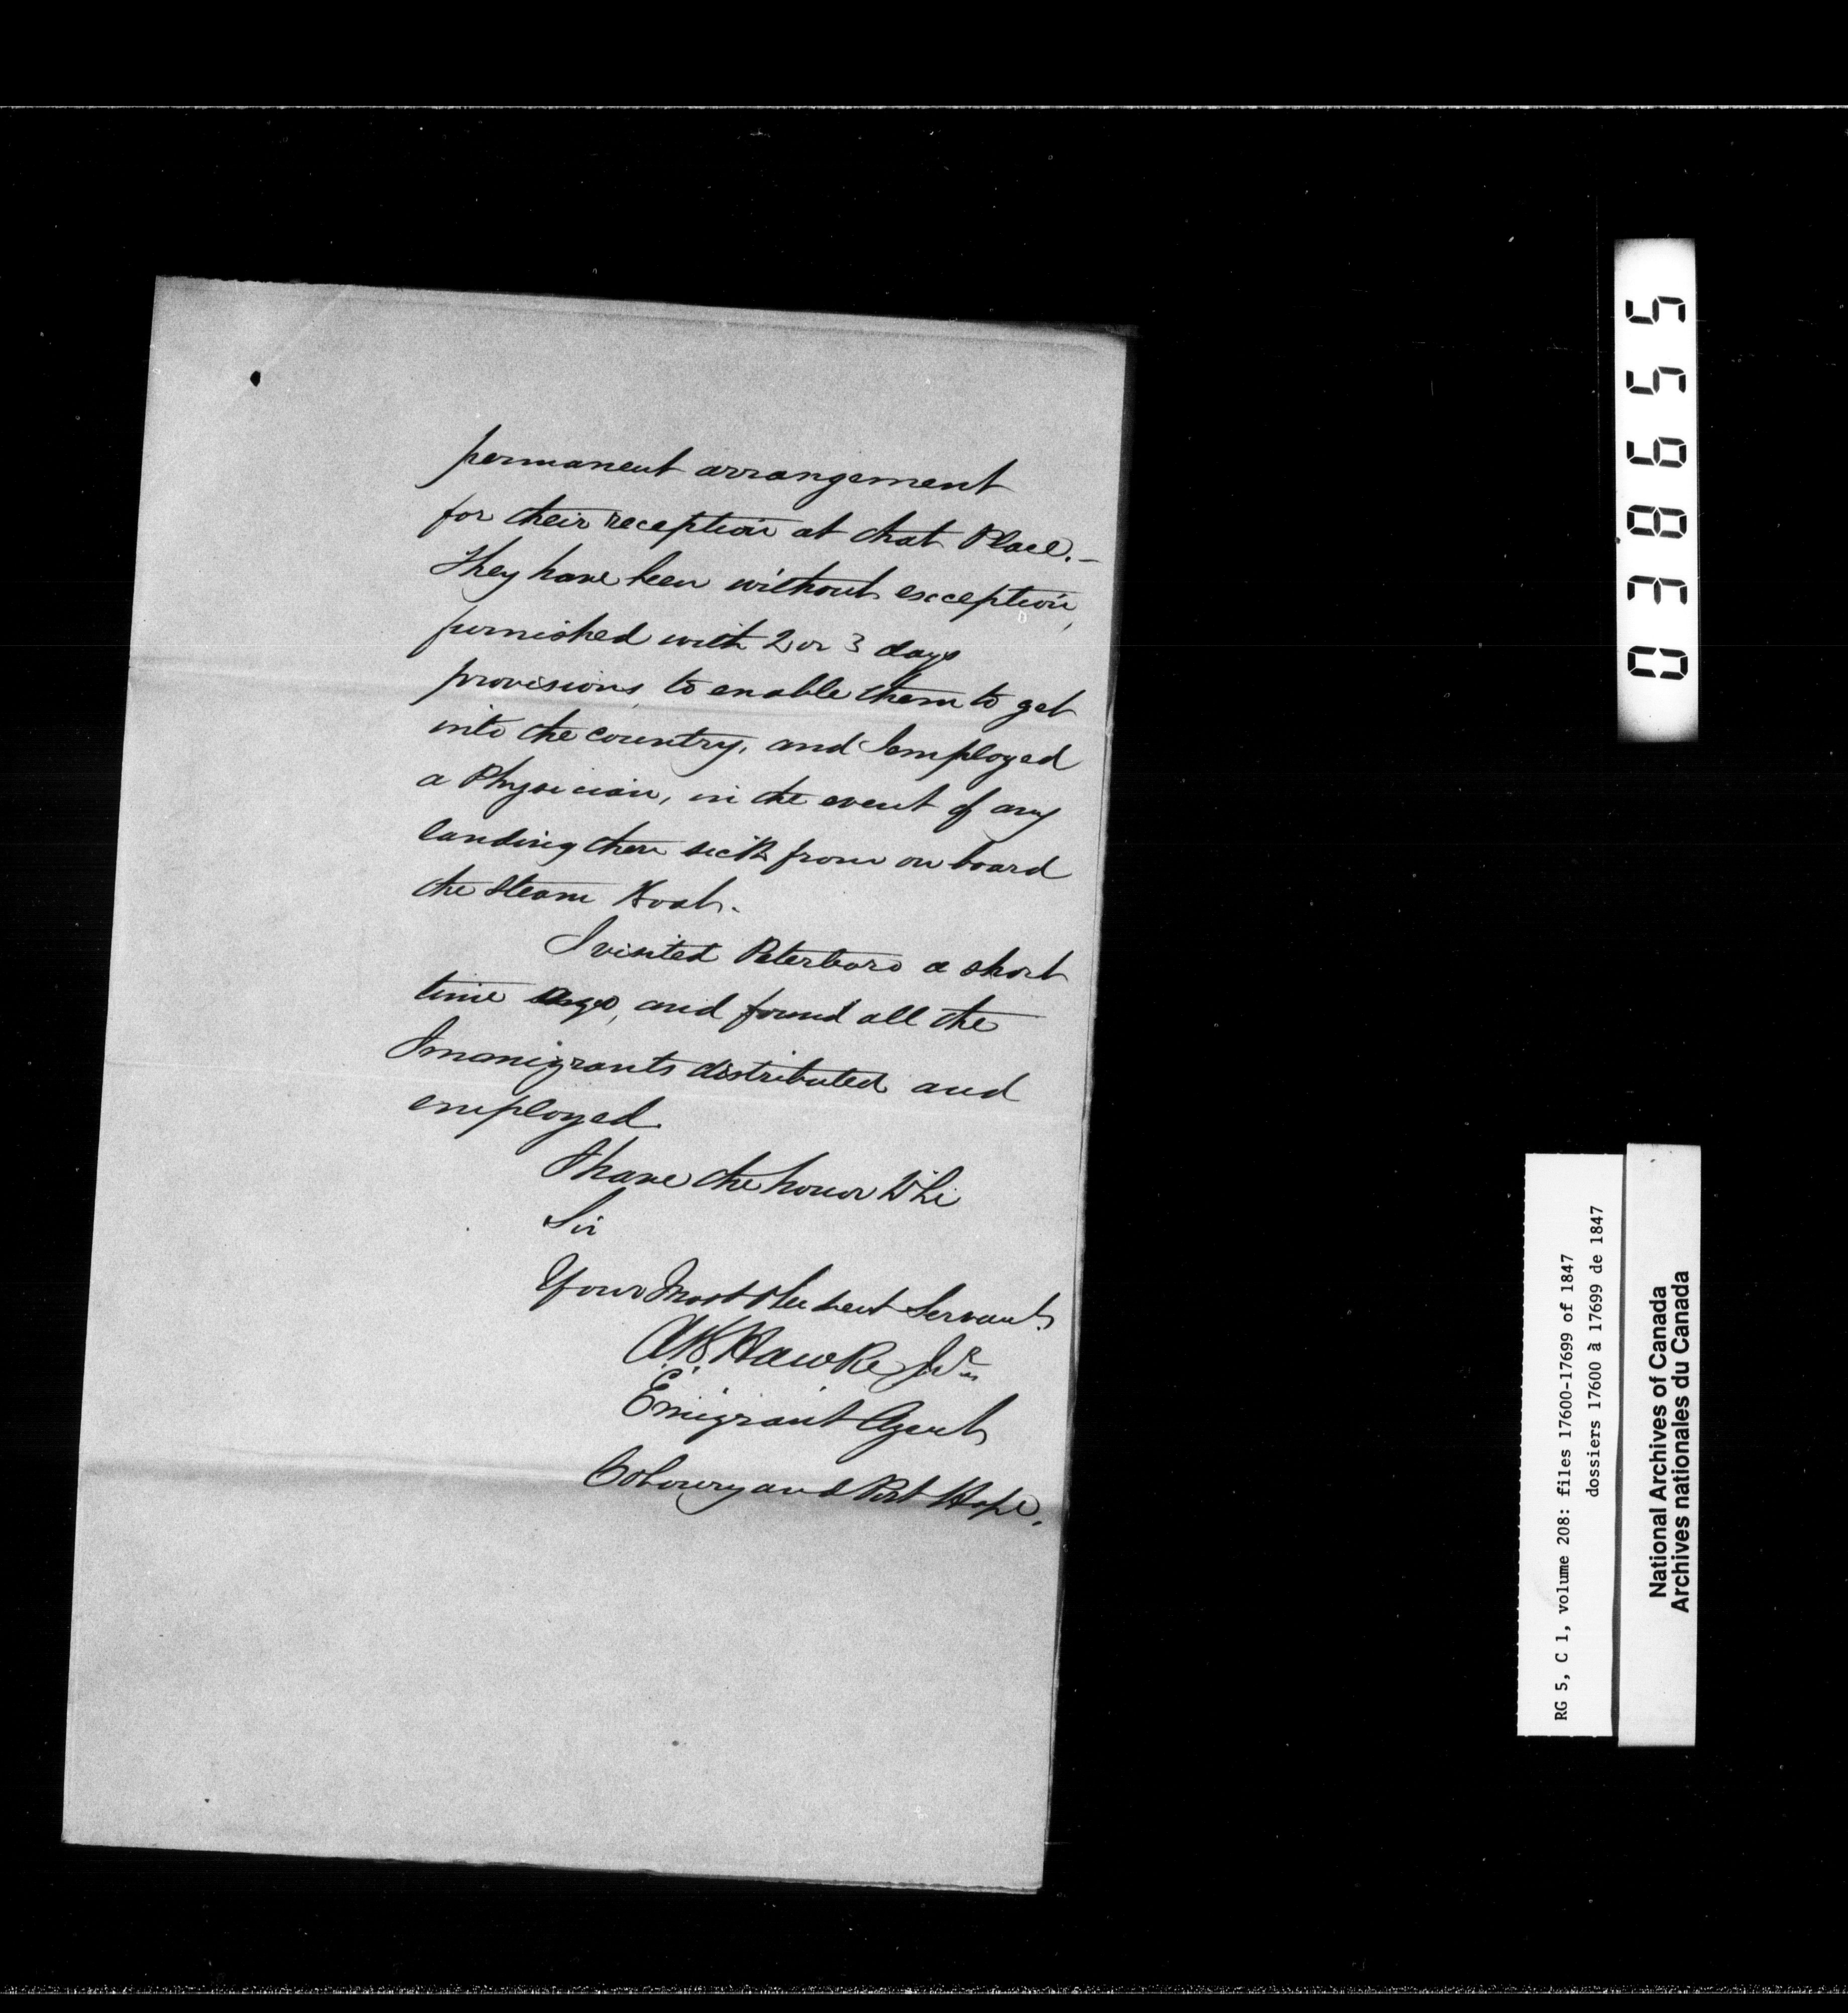 permanent arrangement
for their reception at that Place. -
They have been without exception,
furnished with 2 or 3 days
provisions, to enable them to get
into the country, and I employed
a Physician, in the event of any
landing there sick from on board
the Steam Boat.
I visited Peterboro a short
time ago, and found all the
Immigrants distributed and
employed.
I have the honor to be
Sir
Your Most Obedient Servant
A.B. Hawke Jr
Emigrant Agent
Cobourg and Port Hope.
038655
RG 5, C 1, volume 208: files 17600-17699 of 1847
dossiers 17600 à 17699 de 1847
National Archives of Canada
Archives nationales du Canada